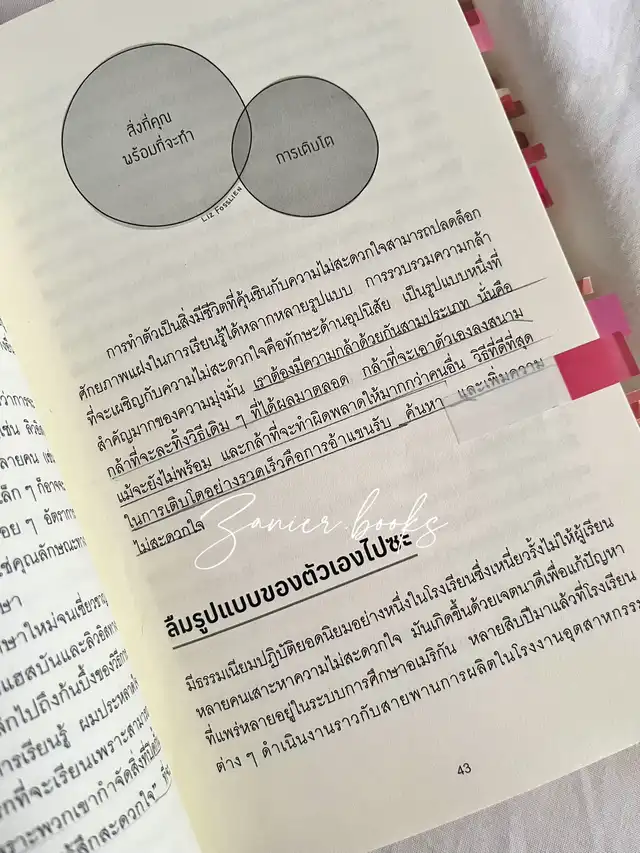 สิ่งที่คุณ
พร้อมที่จะทำ
การเติบโต
LIZ FOSSLIEN
การทำตัวเป็นสิ่งมีชีวิตที่คุ้นชินกับความไม่สะดวกใจสามารถปลดล็อก
ศักยภาพแฝงในการเรียนรู้ได้หลากหลายรูปแบบ การรวบรวมความกล้า
ที่จะเผชิญกับความไม่สะดวกใจคือทักษะด้านอุปนิสัย เป็นรูปแบบหนึ่งที่
สำคัญมากของความมุ่งมั่น เราต้องมีความกล้าด้วยกันสามประเภท นั่นคือ
กล้าที่จะละทิ้งวิธีเดิม ๆ ที่ได้ผลมาตลอด กล้าที่จะเอาตัวเองลงสนาม
แม้จะยังไม่พร้อม และกล้าที่จะทำผิดพลาดให้มากกว่าคนอื่น วิธีที่ดีที่สุด
ในการเติบโตอย่างรวดเร็วคือการอ้าแขนรับ ค้นหา และเพิ่มความ
ไม่สะดวกใจ
Zanier.books
ลืมรูปแบบของตัวเองไปซะ
มีธรรมเนียมปฏิบัติยอดนิยมอย่างหนึ่งในโรงเรียนซึ่งเหนี่ยวรั้งไม่ให้ผู้เรียน
หลายคนเสาะหาความไม่สะดวกใจ มันเกิดขึ้นด้วยเจตนาดีเพื่อแก้ปัญหา
ที่แพร่หลายอยู่ในระบบการศึกษาอเมริกัน หลายสิบปีมาแล้วที่โรงเรียน
ต่าง ๆ ดำเนินงานราวกับสายพานการผลิตในโรงงานอุตสาหกรรม
43